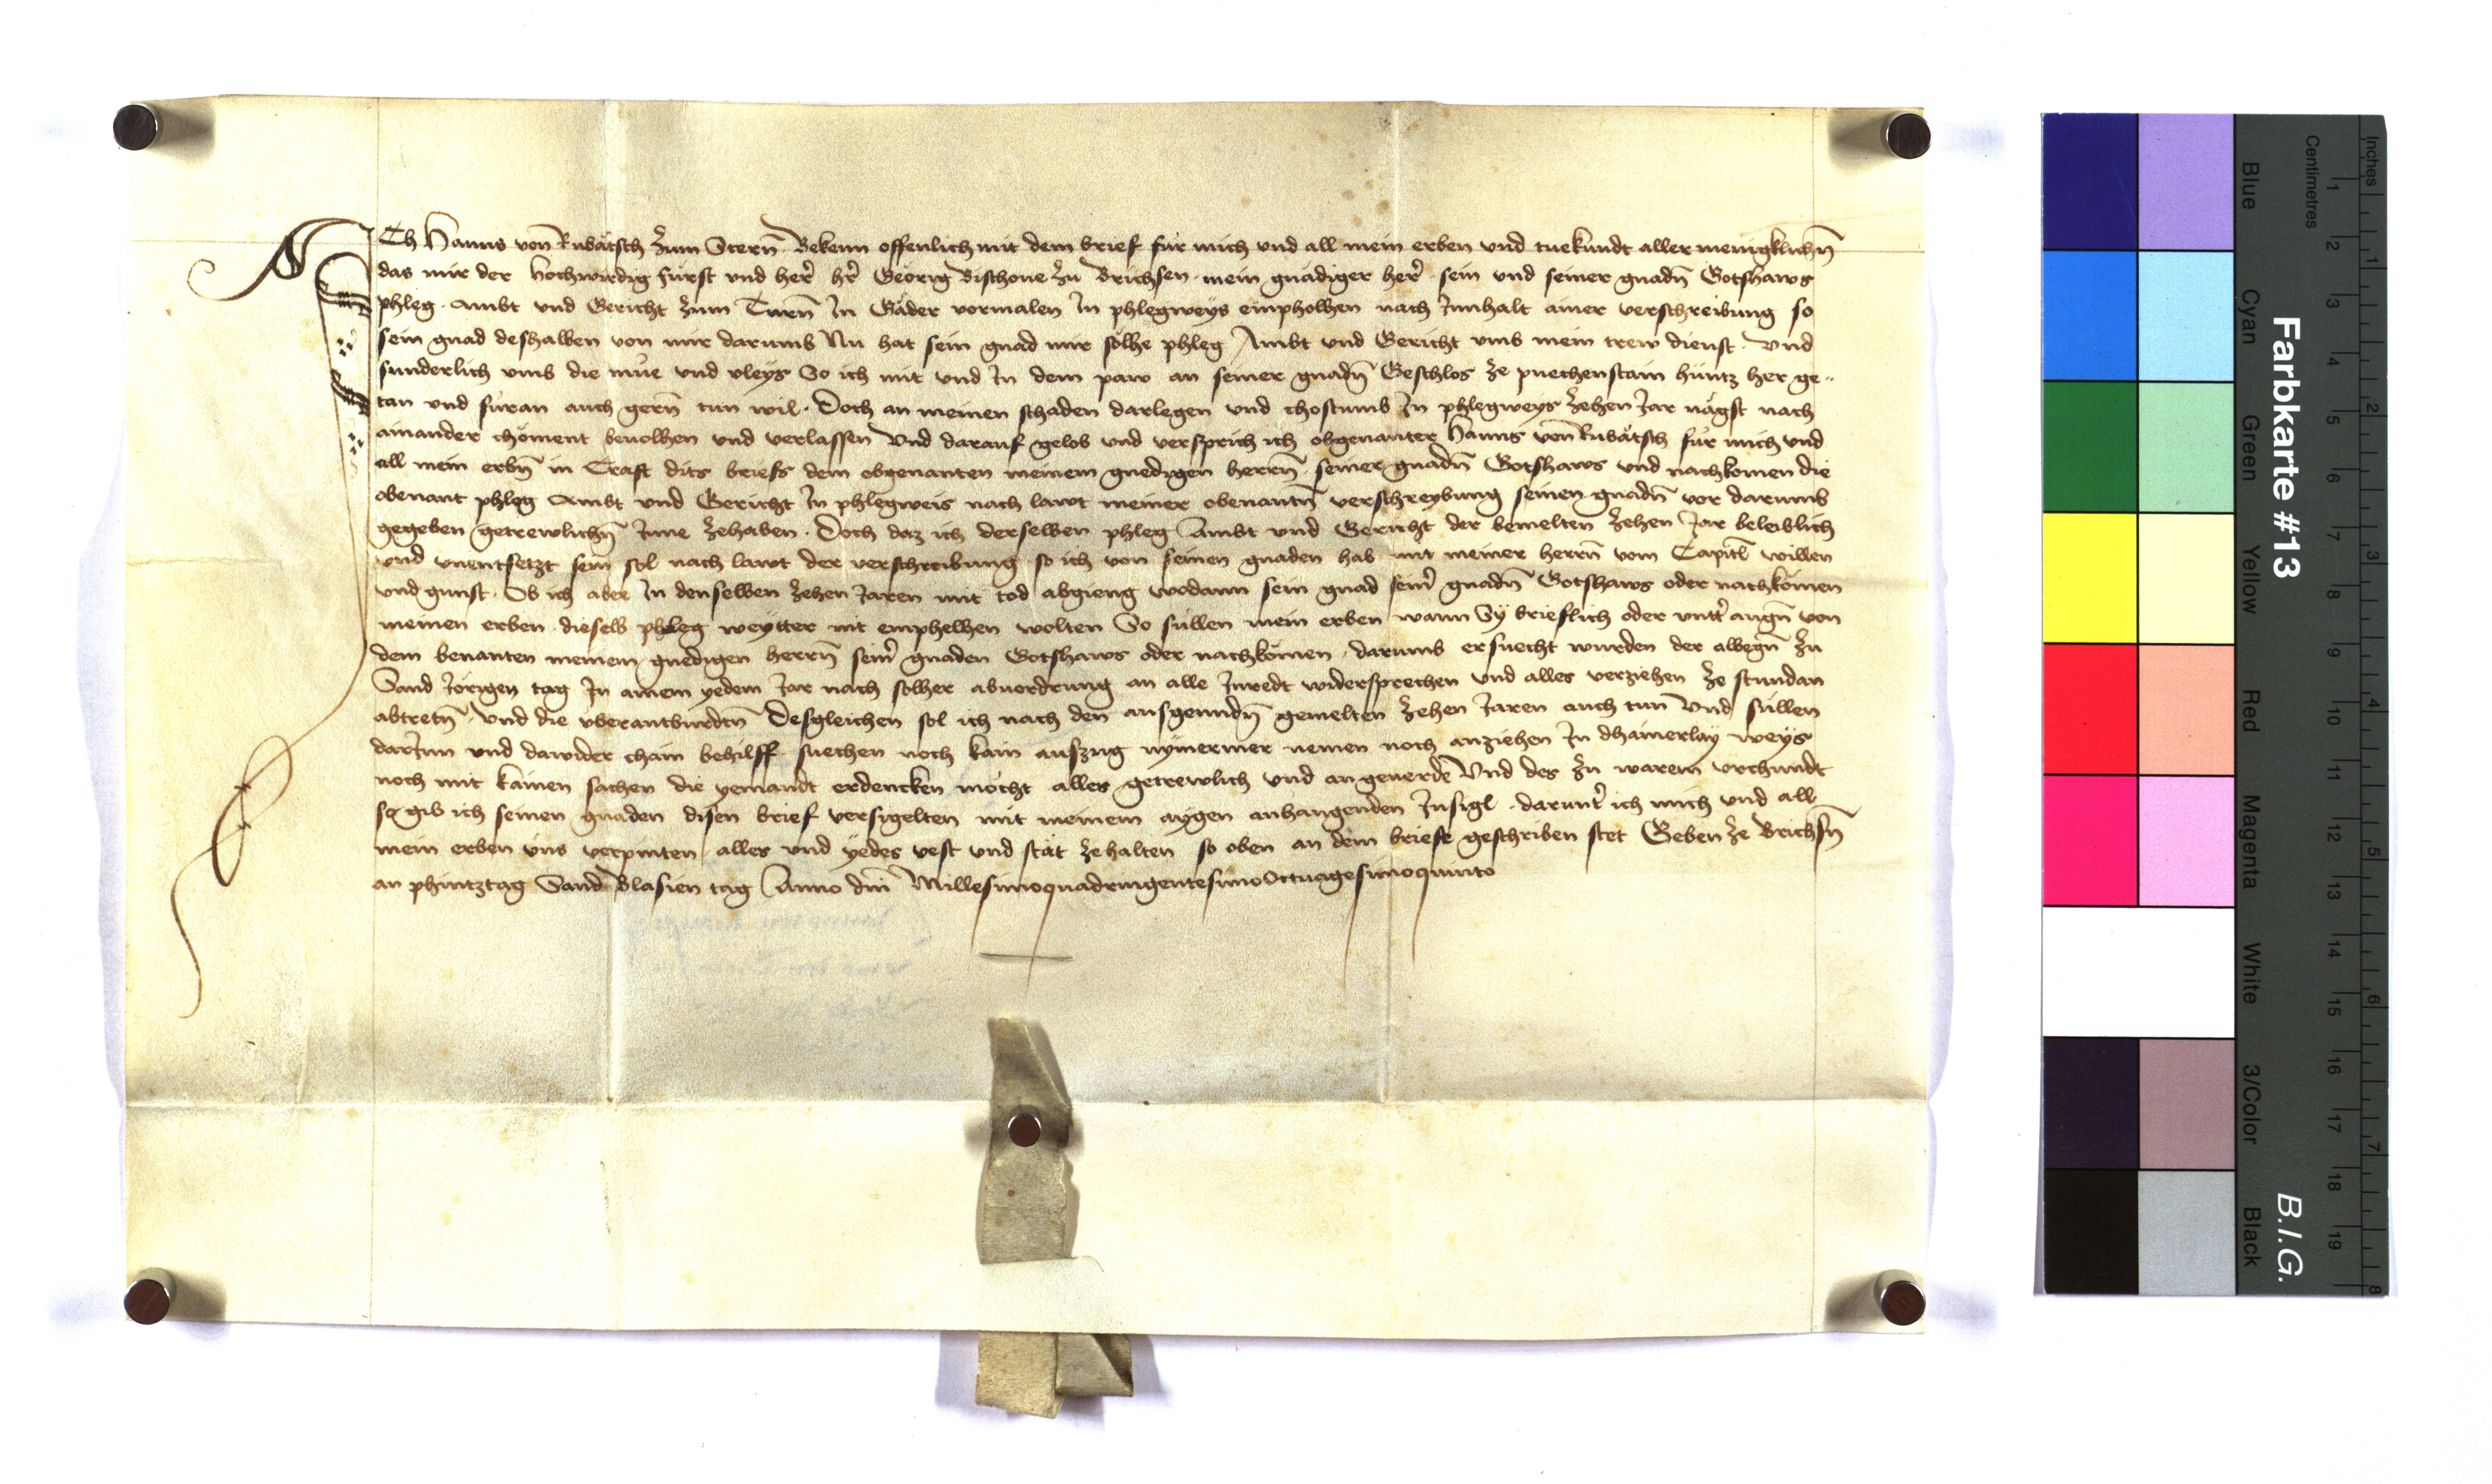 ICh Hanns von Rubätsch zum Stern Bekenn offenlich mit dem brief für mich vnd all mein erben vnd tue kundt aller menigklichn̄
das mir der hochwirdig fürst vnd her̄ hr̄ Geörig Bischoue zu Brichsen mein gnädiger her̄ sein vnd seiner gnadn̄ Gotshaws
phleg Ambt vnd Gericht zum Turn̄ In Gäder vormalen In phlegweys emphollhen nach Innhalt ainer verschreibung so
sein gnad deshalben von mir darumb Nu hat sein gnad mir sölhe phleg Ambt vnd Gericht vmb mein trew dienst Vnd
sunderlich vmb die müe vnd vleys So ich mit vnd In dem paw an seiner gnadn̄ Geschlos ze puechenstain hüntz her ge-
tan vnd füran auch gern̄ tun wil. Doch an meinen schaden darlegen vnd chostumb In phlegweys zehen Jar nägst nach
ainander chöment beuolhen vnd verlassen Vnd darauf gelob vnd versprich ich obgenanter Hanns von Rubätsch für mich vnd
all mein erbn̄ in Craft dits briefs dem obgenanten meinem gnedigen herrn̄ seiner gnadn̄ Gotshaws vnd nachkomen die
obenant phleg Ambt vnd Gericht In phlegweis nach lawt meiner obenantn̄ verschreybung seinen gnadn̄ vor darumb
gegeben getrewlichn̄ Inne zehaben. Doch daz ich derselben phleg Ambt vnd Gericht der bemelten zehen Jar beleiblich
vnd vnentsetzt sein sol nach lawt der verschreibung so ich von seinen gnaden hab mit meiner herrn̄ vom Capitl willen
vnd gunst. Ob ich aber In denselben zehen Jaren mit tod abgieng wodann sein gnad sein̄ gnadn̄ Gotshaws oder nachkömen
meinen erben dieselb phleg weytter nit emphelhen wolten So süllen mein erben wann Sy brieflich oder vntt̄ augn̄ von
dem benanten meinem gnedigen herrn̄ sein̄ gnaden Gotshaws oder nachkömen darumb ersuecht wurden der albegn̄ zu
Sand Jörigen tag In ainem yedem Jar nach solher abuordrung an alle Inredt widersprechen vnd alles verziehen ze stundan
abtretn̄ Vnd die vberantburdtn̄ Desgleichen sol ich nach den ausgenndn̄ gemelten zehen Jaren auch tun Vnd süllen
darInn vnd dawider chain behilff suechen noch kain auszug nymermer nemen noch anziehen In dhainerlay weys
noch mit kainen sachen die yemandt erdencken möcht alles getrewlich vnd an geuerde Vnd des zu warem vrchundt
so gib ich seinen gnaden disen brief versigelten mit meinem aygen anhangenden Insigl darunt̄ ich mich vnd all
mein erben vns verpinten alles vnd yedes vest vnd stät zehalten so oben an dem briefe geschriben stet Geben ze Brichsn̄
an phintztag Sand Blasien tag Anno dn̄i Millesimoquadringentesimooctuagesimoquinto
Farbkarte #13
B.I.G.
Blue Cyan Green Yellow Red Magenta White 3/Color Black
Centimetres 1 2 3 4 5 6 7 8 9 10 11 12 13 14 15 16 17 18 19
Inches 1 2 3 4 5 6 7 8